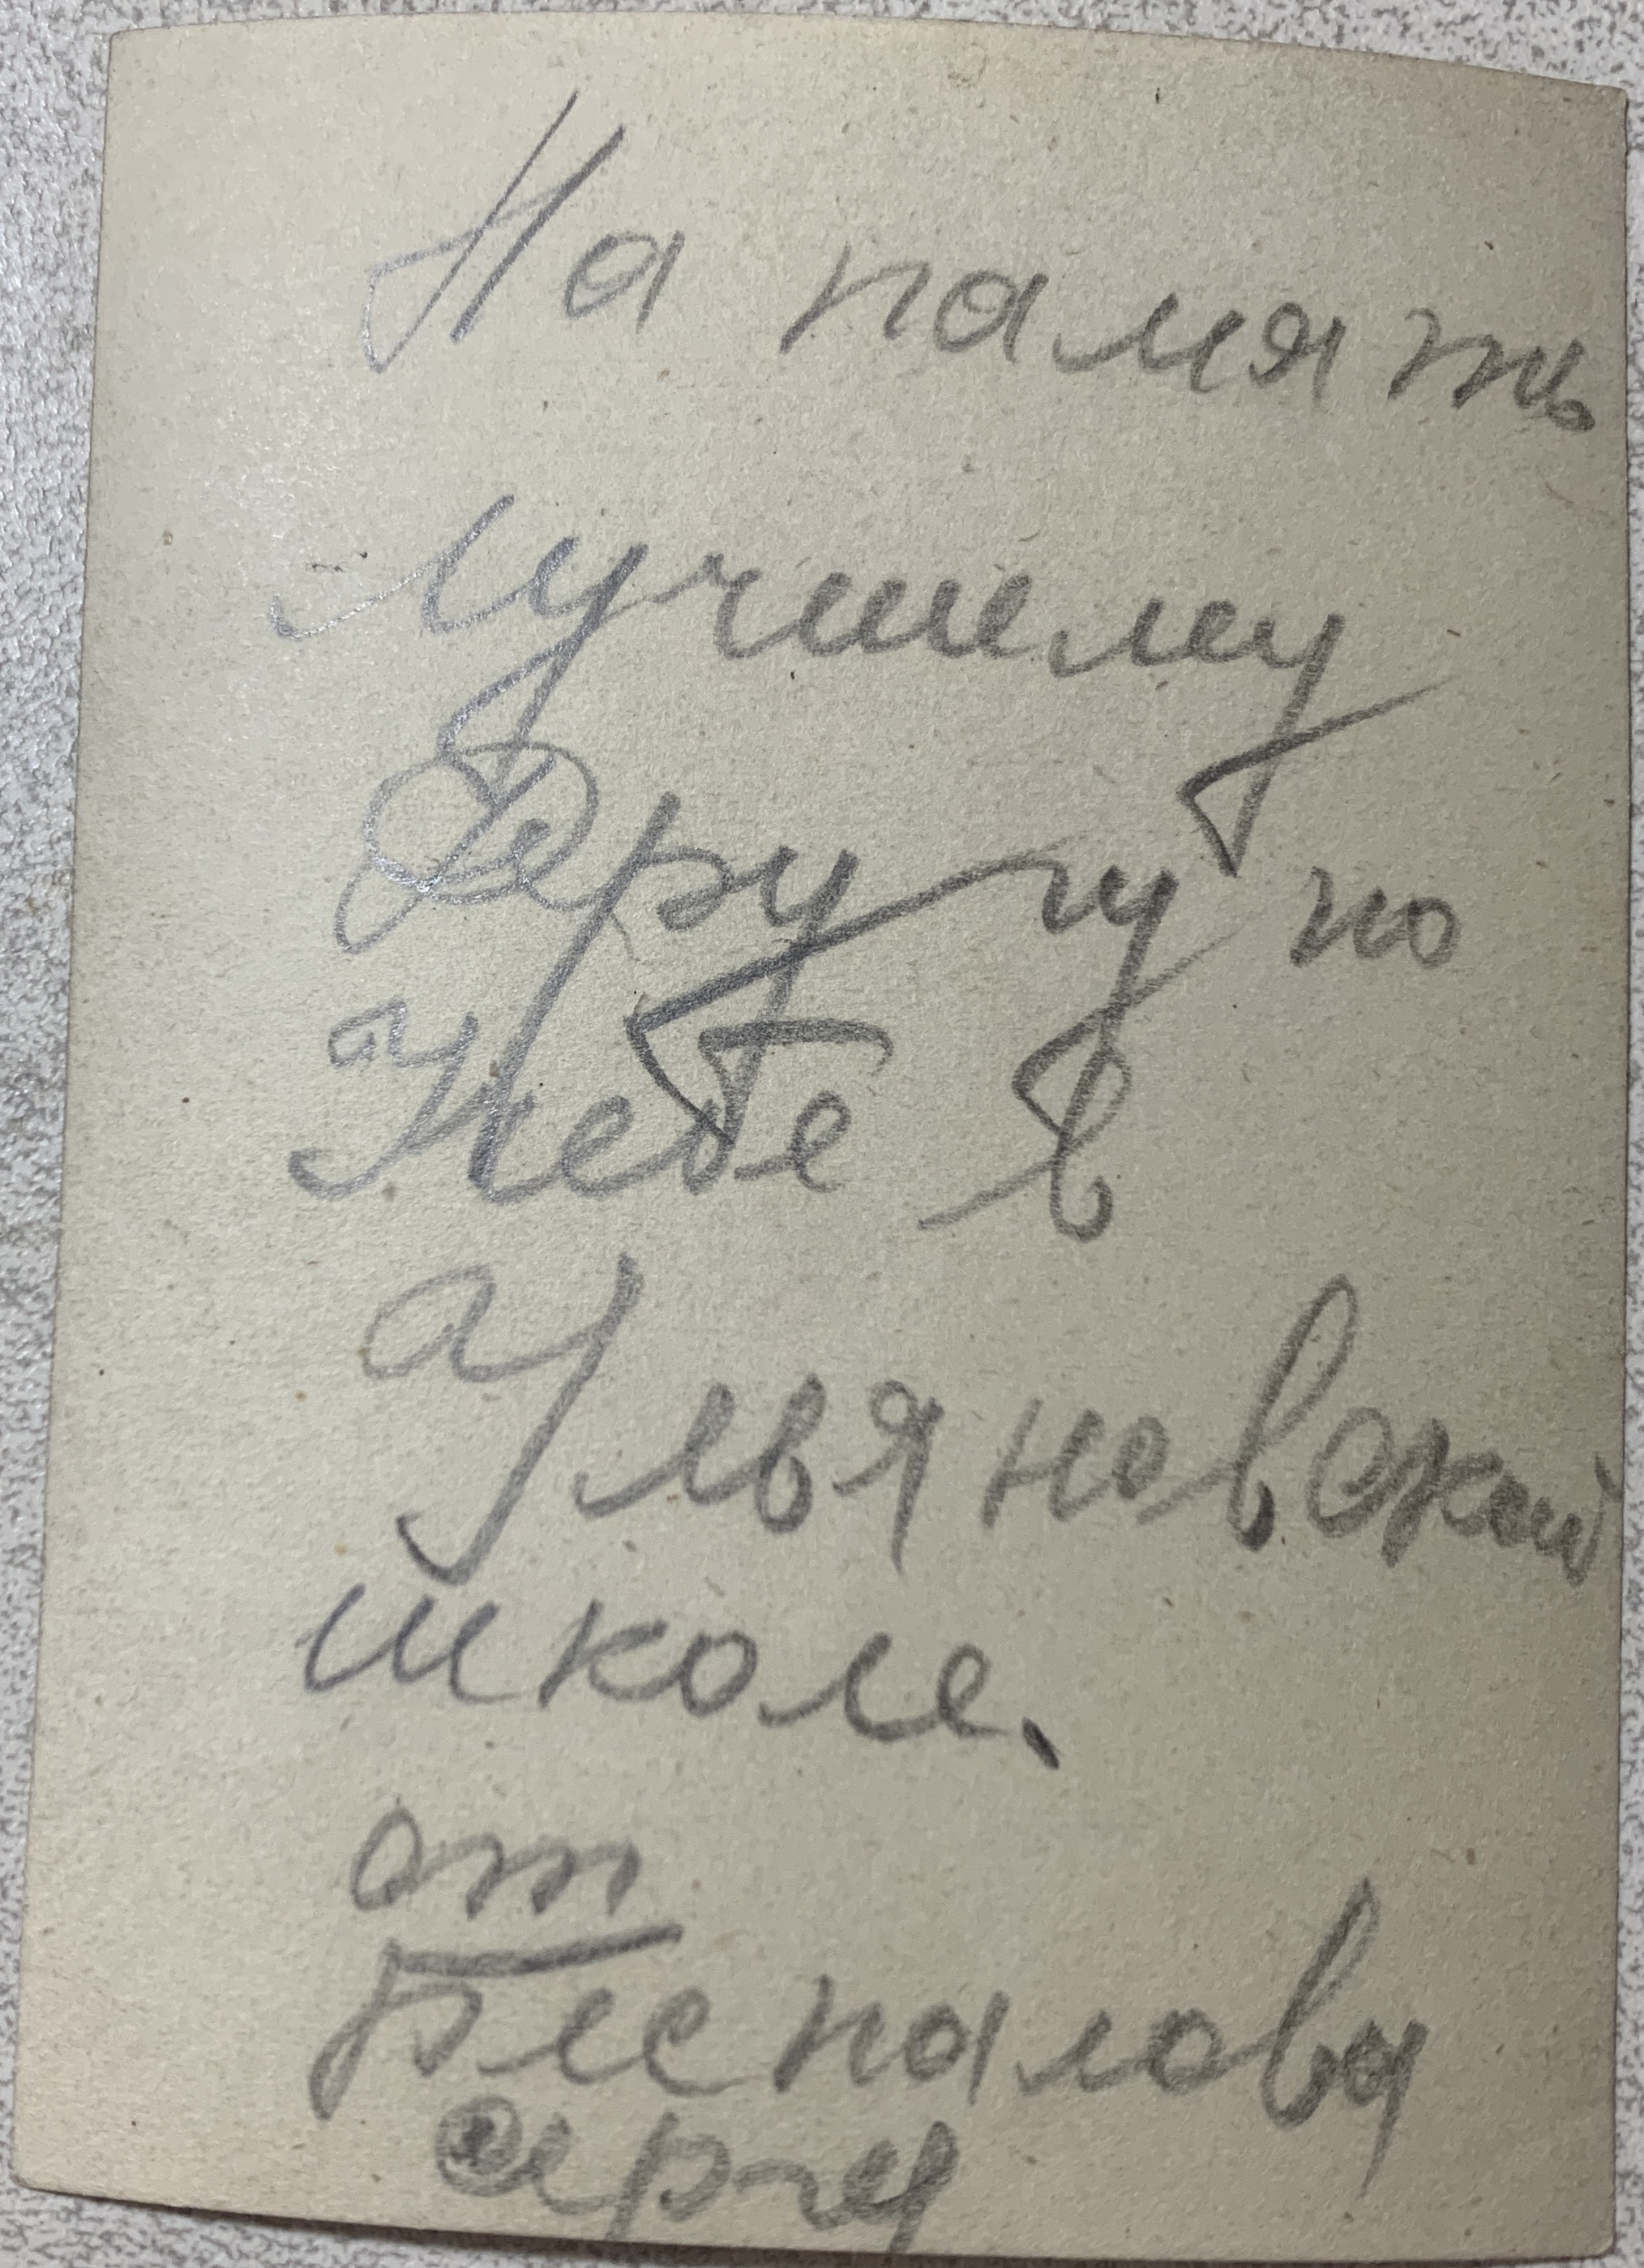 На память
Лучшему
Другу по
Учебе в
Ульяновской
школе.
от
Беспалова